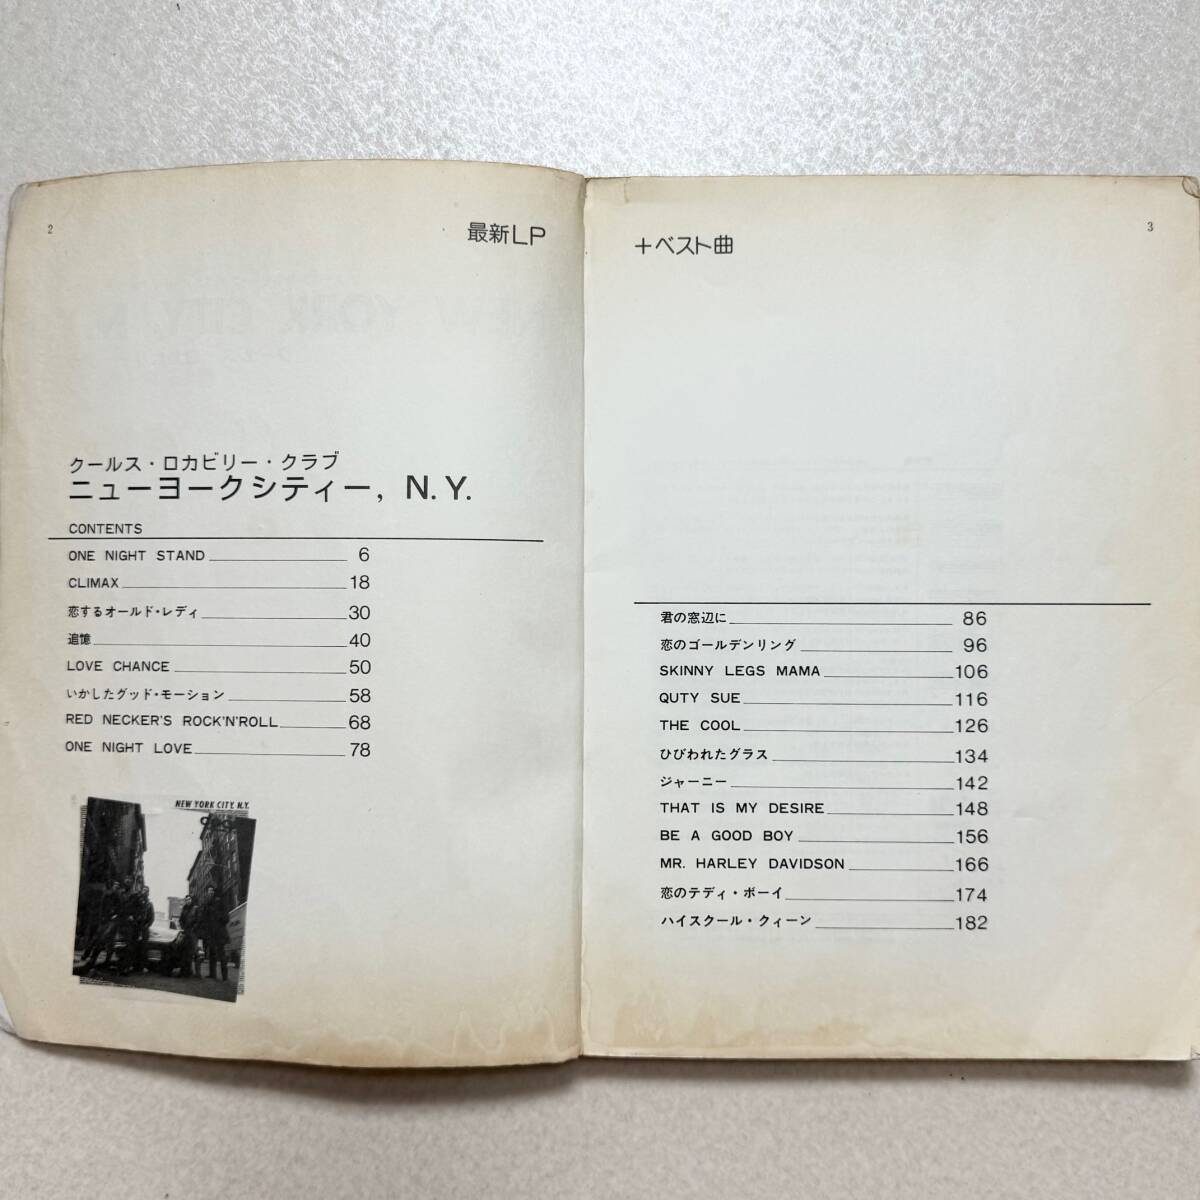 2
最新LP
クールス・ロカビリー・クラブ
ニューヨークシティー, N.Y.
CONTENTS
ONE NIGHT STAND 6
CLIMAX 18
恋するオールド・レディ 30
追憶 40
LOVE CHANCE 50
いかしたグッド・モーション 58
RED NECKER'S ROCK'N'ROLL 68
ONE NIGHT LOVE 78
NEW YORK CITY, N.Y.
3
+ベスト曲
君の窓辺に 86
恋のゴールデンリング 96
SKINNY LEGS MAMA 106
QUTY SUE 116
THE COOL 126
ひびわれたグラス 134
ジャーニー 142
THAT IS MY DESIRE 148
BE A GOOD BOY 156
MR. HARLEY DAVIDSON 166
恋のテディ・ボーイ 174
ハイスクール・クィーン 182